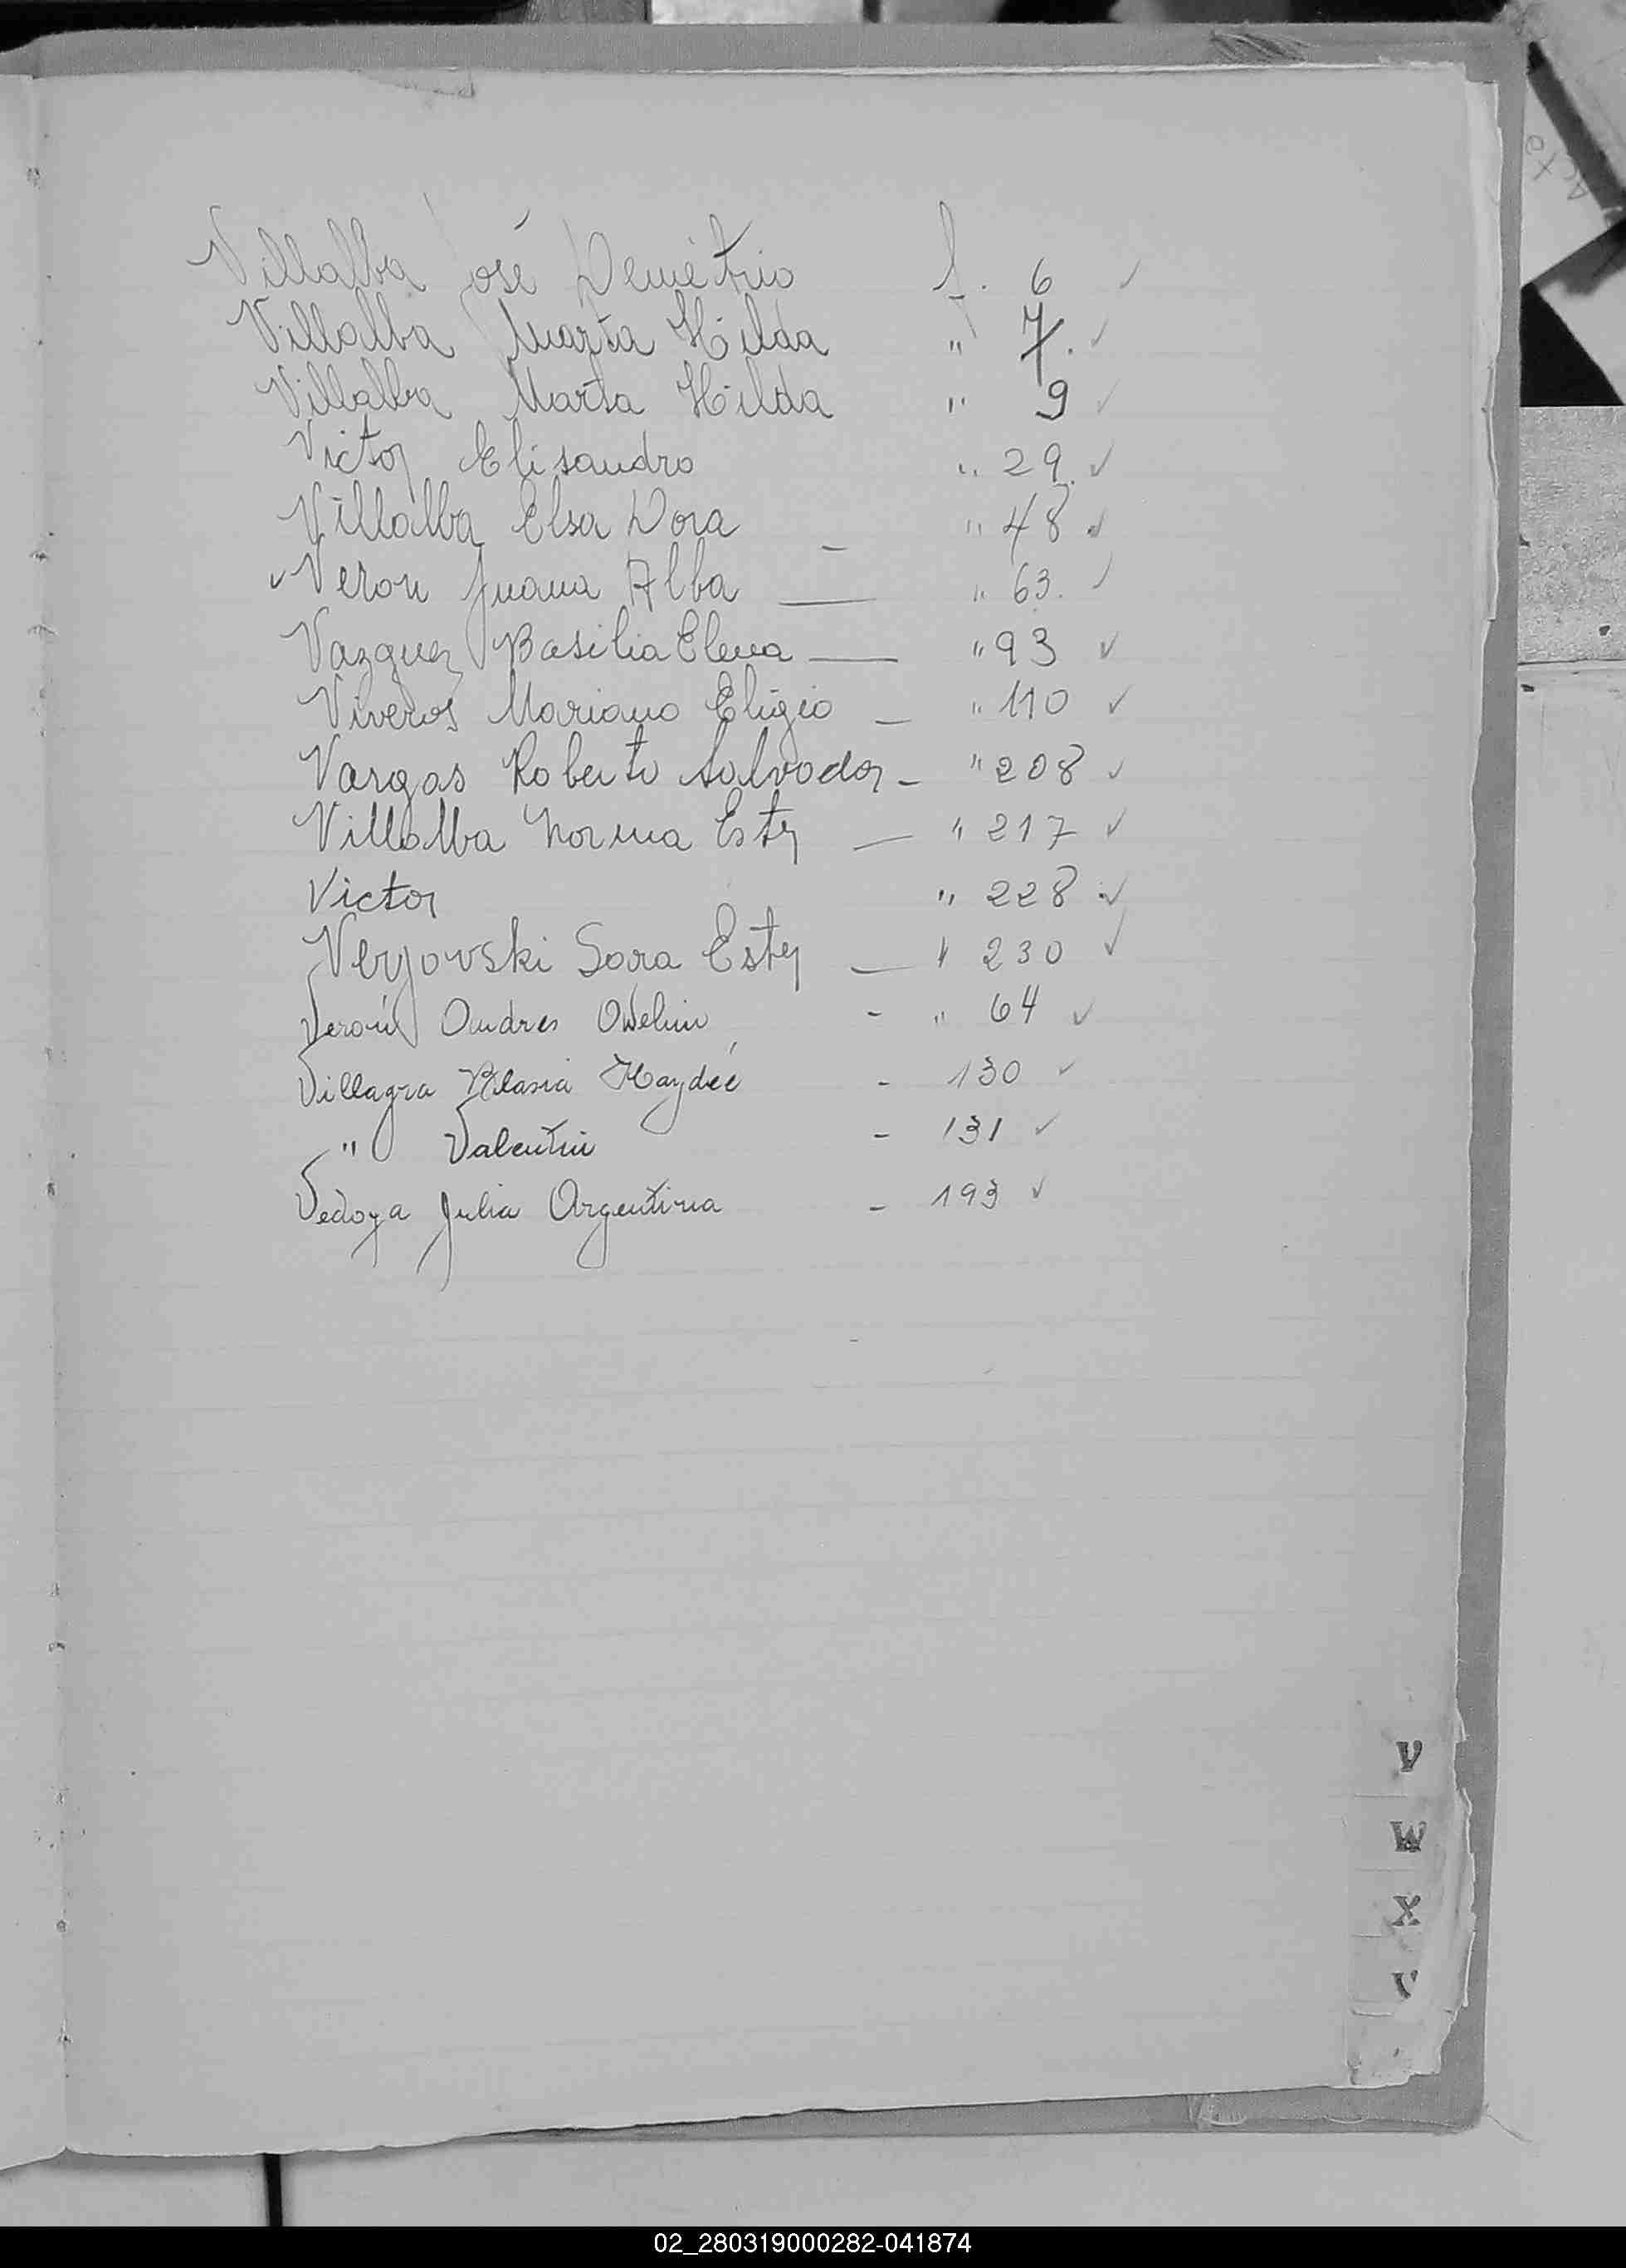 Villalba José Demetrio f. 6 ✓
Villalba Marta Hilda " 7. ✓
Villalba Marta Hilda " 9 ✓
Victor Elisandro " 29. ✓
Villalba Elsa Dora - " 48 ✓
✓ Veron Juana Alba — " 63. ✓
Vazquez Basilia Elena — " 93 ✓
Viveros Mariano Eligio - " 110 ✓
Vargas Roberto Salvador - " 208 ✓
Villalba Norma Ester — " 217 ✓
Victor " 228 ✓
Veryovski Sara Ester — " 230 ✓
Verón Andres - " 64 ✓
Villagra Blasia Haydée - 130 ✓
" Valentin - 131 ✓
Vedoya Julia Argentina - 193 ✓
V
W
X
02_280319000282-041874